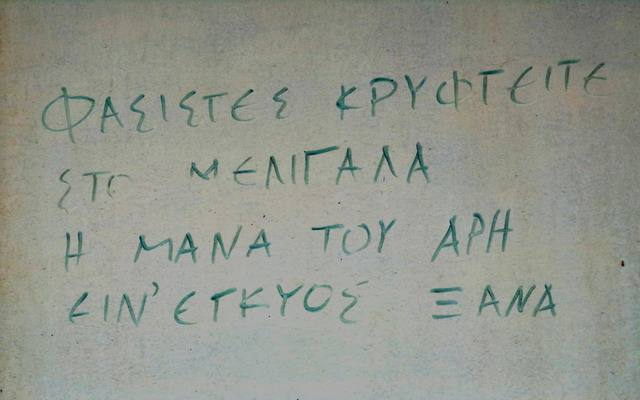 ΦΑΣΙΣΤΕΣ ΚΡΥΦΤΕΙΤΕ
ΣΤΟ ΜΕΛΙΓΑΛΑ
Η ΜΑΝΑ ΤΟΥ ΑΡΗ
ΕΙΝ' ΕΓΚΥΟΣ ΞΑΝΑ